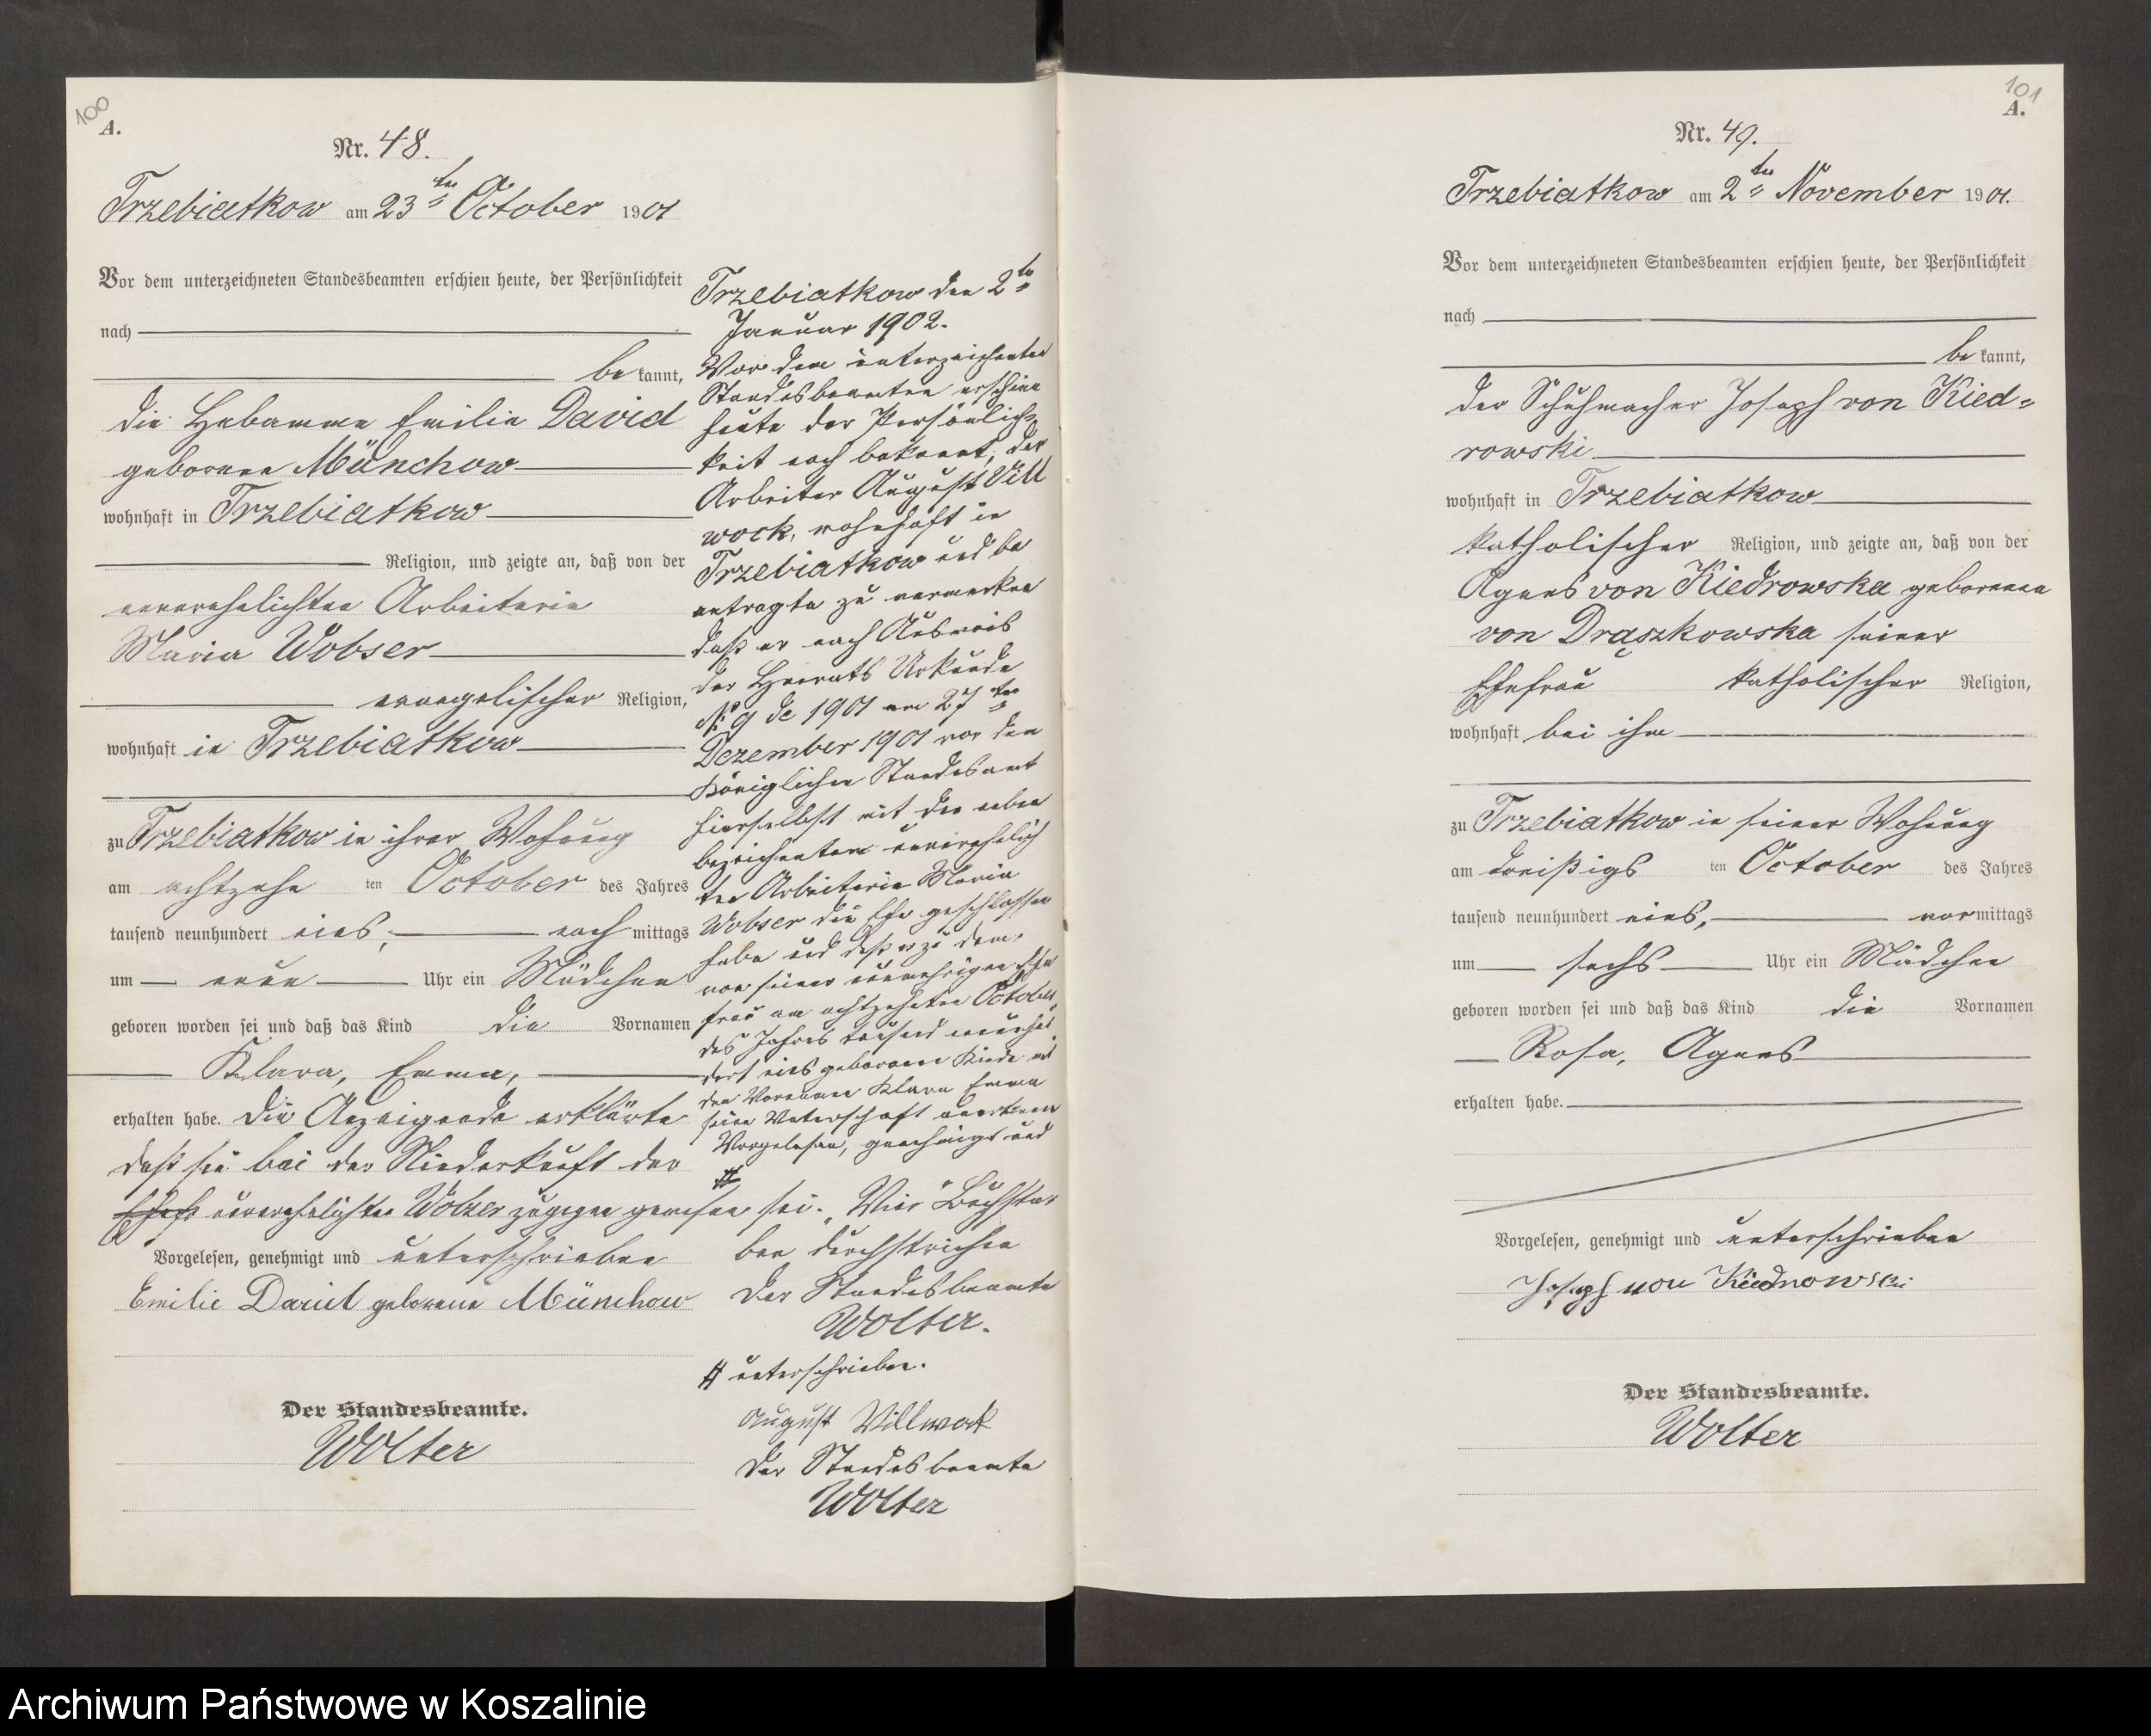 100
A.
Nr. 48.
Trzebiatkow am 23ten October 1901
Vor dem unterzeichneten Standesbeamten erschien heute, der Persönlichkeit
nach
be kannt,
die Hebamme Emilie David
geborene Münchow
wohnhaft in Trzebiatkow
Religion, und zeigte an, daß von der
unverehelichten Arbeiterin
Maria Wobser
evangelischer Religion,
wohnhaft in Trzebiatkow
zu Trzebiatkow in ihrer Wohnung
am achtzehn ten October des Jahres
tausend neunhundert eins, nach mittags
um neun Uhr ein Mädchen
geboren worden sei und daß das Kind die Vornamen
Klara, Emma,
erhalten habe. Die Anzeigende erklärte
daß sie bei der Niederkunft der
unverehelichten Wobser zugegen gewesen sei. Vier Buchsta-
ben durchstrichen
Vorgelesen, genehmigt und unterschrieben
Emilie David geborene Münchow
Der Standesbeamte
Wolter.
Der Standesbeamte.
Wolter
Trzebiatkow den 2ten
Januar 1902.
Vor dem unterzeichneten
Standesbeamten erschien
heute der Persönlich-
keit nach bekannt, der
Arbeiter August Vill
wock, wohnhaft in
Trzebiatkow und be
antragte zu vermerken
daß er nach Ausweis
der Heirats Urkunde
No 9 de 1901 am 27ten
Dezember 1901 vor dem
Königlichen Standesamt
hierselbst mit der neben
bezeichneten unverehelich
ten Arbeiterin Maria
Wobser die Ehe geschlossen
habe und daß er zu dem,
von seiner nunmehrigen Ehe
frau am achtzehnten October
des Jahres tausend neunhun
dert eins geborenen Kinde mit
den Vornamen Klara Emma
seine Vaterschaft anerkenne
Vorgelesen, genehmigt und
#
# unterschrieben.
August Villwock
Der Standesbeamte
Wolter
101
A.
Nr. 49.
Trzebiatkow am 2ten November 1901.
Vor dem unterzeichneten Standesbeamten erschien heute, der Persönlichkeit
nach
be kannt,
der Schuhmacher Joseph von Kied-
rowski
wohnhaft in Trzebiatkow
katholischer Religion, und zeigte an, daß von der
Agnes von Kiedrowska geborenen
von Draszkowska seiner
Ehefrau katholischer Religion,
wohnhaft bei ihm
zu Trzebiatkow in seiner Wohnung
am dreißigs ten October des Jahres
tausend neunhundert eins, vor mittags
um sechs Uhr ein Mädchen
geboren worden sei und daß das Kind die Vornamen
Rosa, Agnes
erhalten habe.
Vorgelesen, genehmigt und unterschrieben
Joseph von Kiednowski
Der Standesbeamte.
Wolter
Archiwum Państwowe w Koszalinie